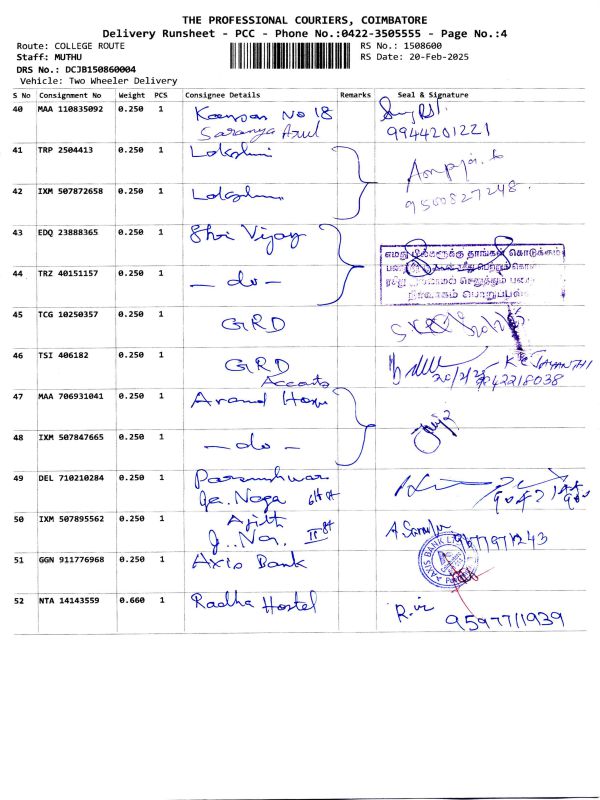 THE PROFESSIONAL COURIERS, COIMBATORE
Delivery Runsheet - PCC - Phone No.:0422-3505555 - Page No.:4
Route: COLLEGE ROUTE
RS No.: 1508600
Staff: MUTHU
RS Date: 20-Feb-2025
DRS No.: DCJB150860004
Vehicle: Two Wheeler Delivery
S No Consignment No Weight PCS Consignee Details Remarks Seal & Signature
40 MAA 110835092 0.250 1 No 18
Saranya Arul
9944201221
41 TRP 2504413 0.250 1 Lakshmi
42 IXM 507872658 0.250 1 Lakshmi
9500827248
43 EDQ 23888365 0.250 1 Shri Vijay
எமது பில்களுக்கு தாங்கள் கொடுக்கும்
44 TRZ 40151157 0.250 1 - do -
நிர்வாகம்
45 TCG 10250357 0.250 1 GRD
46 TSI 406182 0.250 1 GRD
Accounts
K C JAYANTHI
20/2/25
9042218038
47 MAA 706931041 0.250 1 Anand
48 IXM 507847665 0.250 1 - do -
49 DEL 710210284 0.250 1 Parameshwar
Ga. Naga 6th st
50 IXM 507895562 0.250 1 Ajith
II st
9677971243
51 GGN 911776968 0.250 1 Axis Bank
AXIS BANK LTD
52 NTA 14143559 0.660 1 Radha Hostel
9597711939